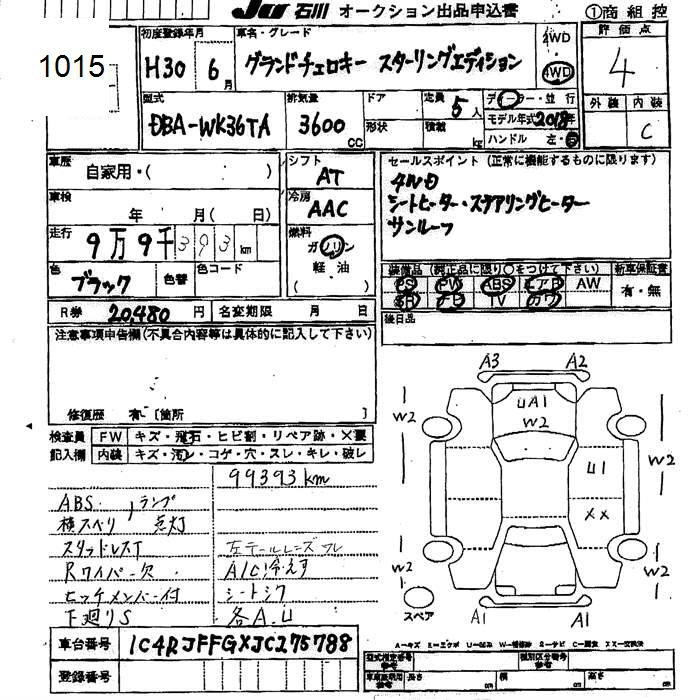 JU 石川 オークション出品申込書
①商組控
1015
初度登録年月
H30 6月
車名・グレード
グランドチェロキー スターリングエディション
2WD
4WD
評価点
4
型式
DBA-WK36TA
排気量
3600 CC
ドア
形状
定員 5人
積載 kg
ディーラー・並行
モデル年式 2018年
ハンドル 左・右
外装 内装
C
車歴
自家用・( )
シフト
AT
セールスポイント (正常に機能するものに限ります)
4WD
シートヒーター・ステアリングヒーター
サンルーフ
車検
年 月 ( 日)
冷房
AAC
走行
9万9千393km
燃料
ガソリン
軽油
( )
色
ブラック
色替
色コード
装備品 (純正品に限り○をつけて下さい)
新車保証書
PS PW ABS エアB AW
有・無
SR ナビ TV カワ
R券 20,480 円
名変期限 月 日
後日品
注意事項申告欄(不具合内容等は具体的に記入して下さい)
修復歴 有〔箇所 〕
検査員
記入欄
FW キズ・飛石・ヒビ割・リペア跡・X要
内装 キズ・汚レ・コゲ・穴・スレ・キレ・破レ
99393km
ABS、ランプ
横スベリ 点灯
スタッドレスT
左テールレンズワレ
Rワイパー欠
A/C冷えず
ヒッチメンバー付
シートシワ
下廻りS
各A.U
A3 A2
UA1
W2
W2
W2
U1
XX
W2
W2
スペア
A1
A1
車台番号 1C4RJFFGXJC275788
登録番号
A-キズ E-エクボ U-凹み W-補修跡 S-サビ C-腐食 XX-交換済
型式指定番号
類別区分番号
長さ cm 幅 cm 高さ cm